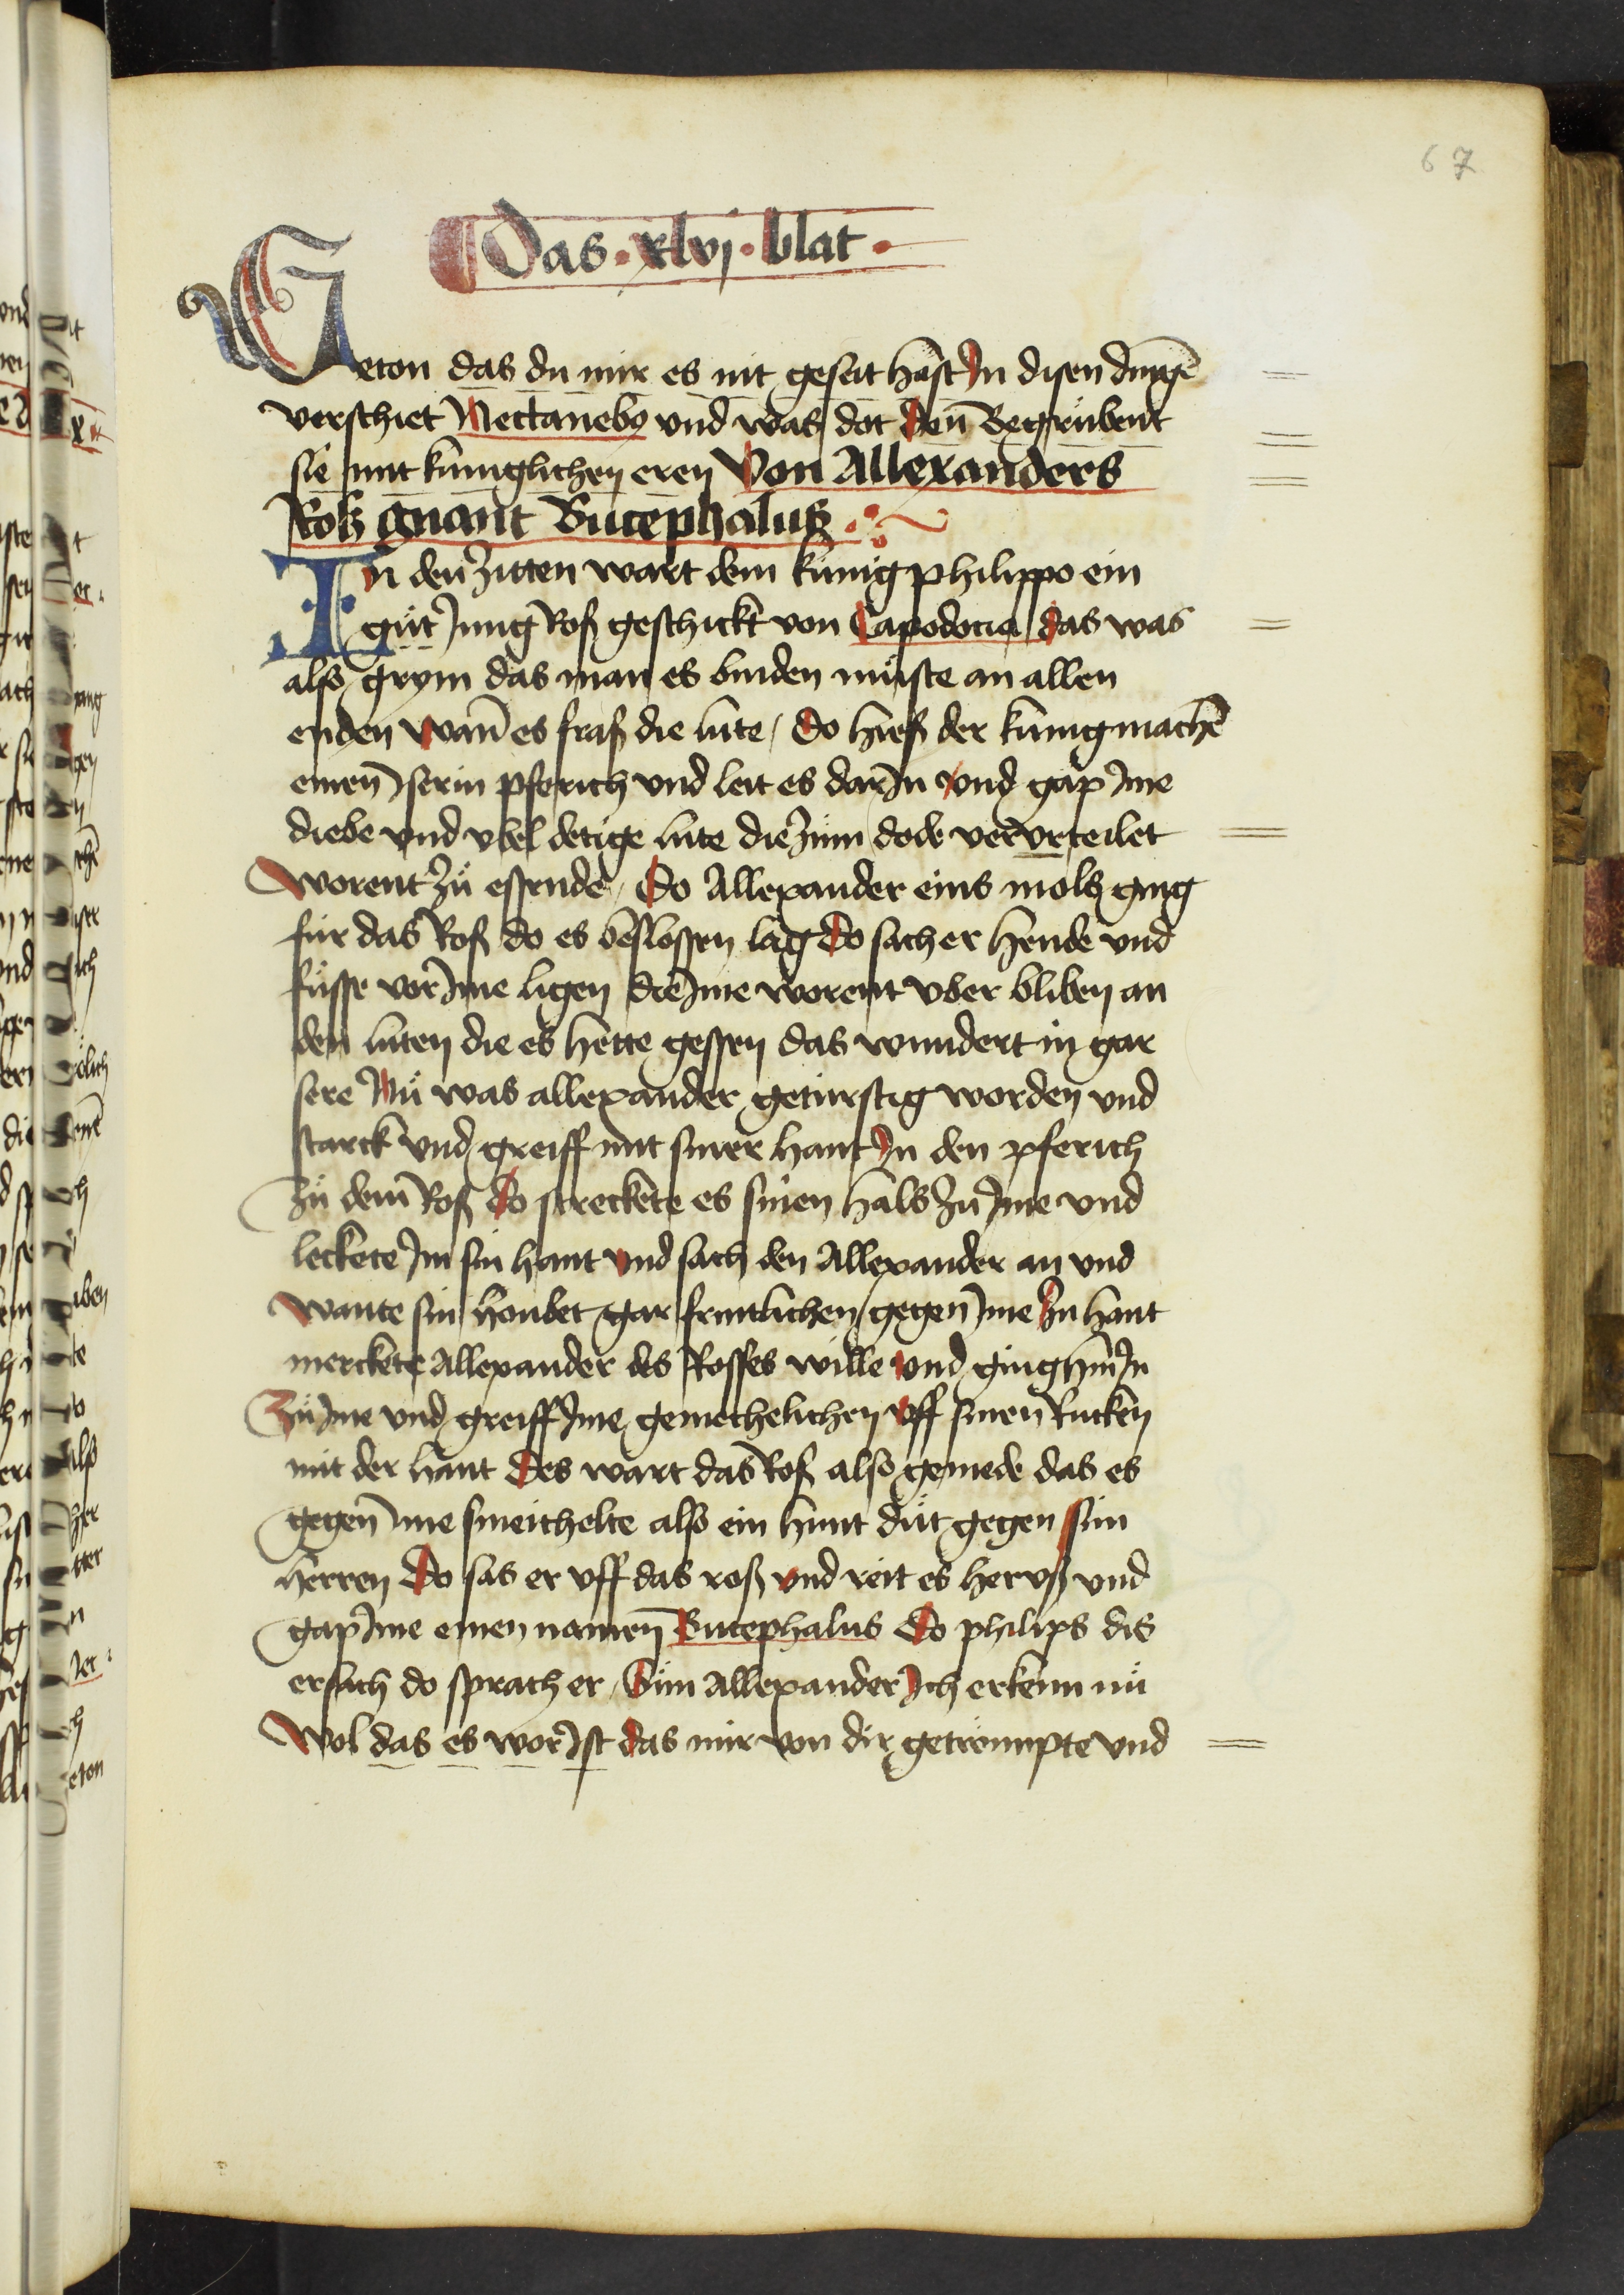 67
Das · xlvj · blat ·
Geton das du mir es nit geseit hast Jn disen dingē
verschiet Nectanebo vnd was dot den Begrůbent
sie mit kúniglichen eren Von Allexanders
Rosz gnant Bucephalus
In den zitten wart dem kúnig philippo ein
gůt Jung Roß geschickt von Capodocia das was
also grym das man es binden můste an allen
enden wañ es fraß die lúte / Do hieß der kúnig machē
einen Jserin pferich vnd leit es dar Jn vnd gap Jme
diebe vnd vbel detige lúte die zům dode vervrteilet
worent zů essende / Do Allexander eins mols ging
fúr das Roß do es beslossen lag Do sach er hende vnd
fússe vor Jme ligen die Jme worent vber bliben an
den lúten die es hette gessen das wundert in gar
sere Nů was allexander getúrstig worden vnd
starck vnd greiff mit siner hant Jn den pferich
zů dem Roß do streckete es sinen hals zů Jme vnd
leckete Jm sin hant vnd sach den Allexander an vnd
wante sin houbet gar fruntlichen gegen Jme Zů hant
merckete Allexander des Rosses wille vnd ging hin Jn
Zů Jme vnd greiff Jme gemechelichen vff sinen Rucken
mit der hant Des wart das Roß also gemede das es
gegen ime smeichelte also ein hunt důt gegen sim
herren Do sas er vff das roß vnd reit es hervß vnd
gap Jme einen namen Bucephalus Do philips dis
ersach do sprach er / Sún Allexander Jch erkenn nů
wol das es wor Jst das mir von dir getrömpte vnd